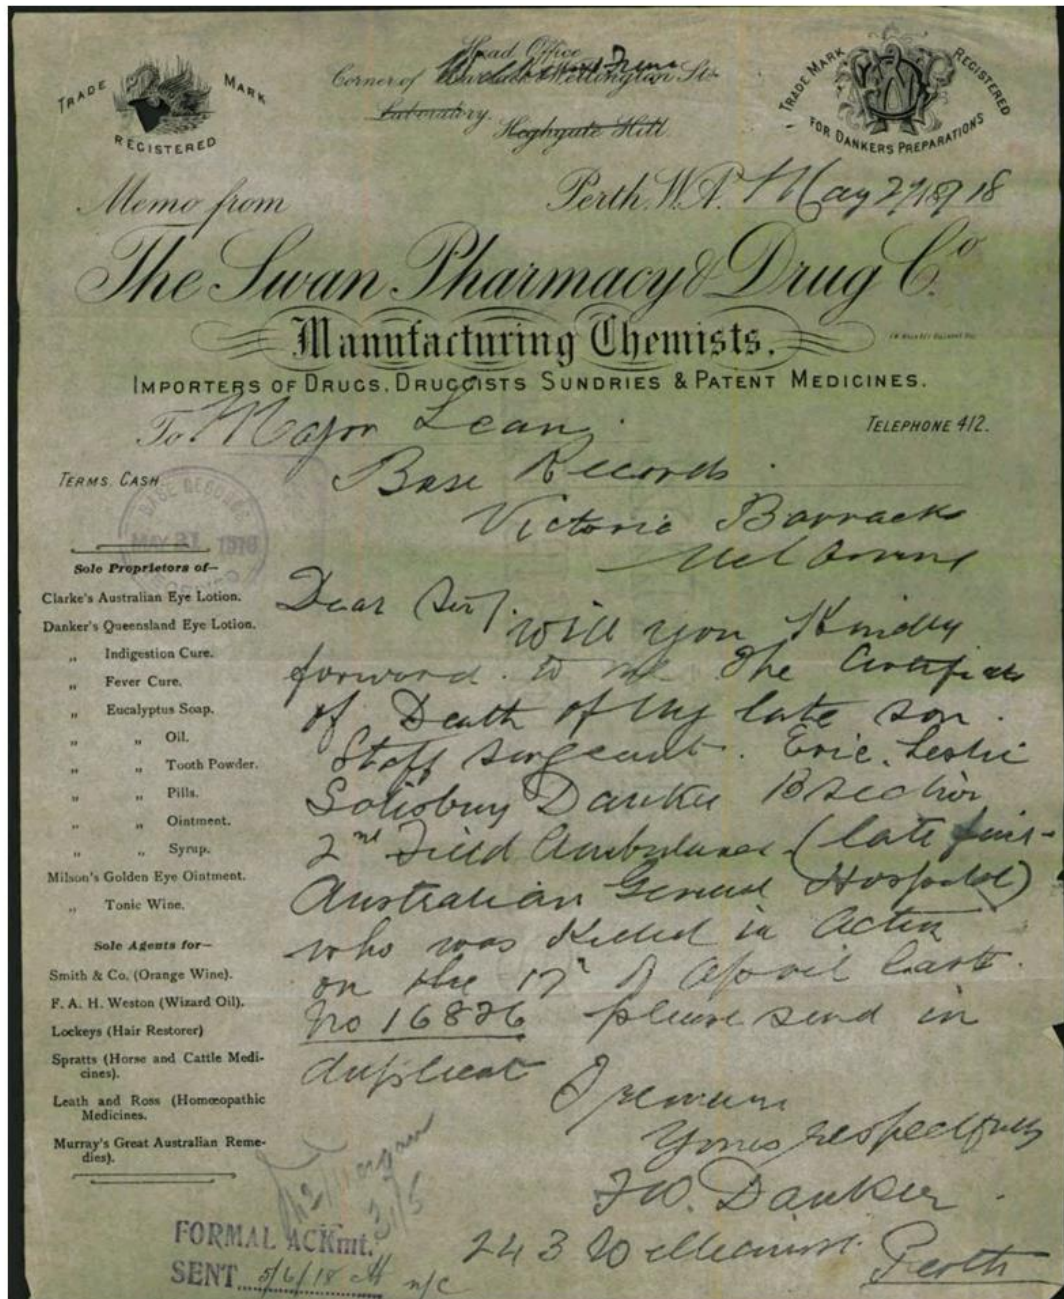 TRADE MARK
REGISTERED
Head Office
Corner of Wellington St
Laboratory.
Highgate Hill
TRADE MARK REGISTERED
FOR DANKERS PREPARATIONS
Memo from
Perth. W.A. May 27/5/18
The Swan Pharmacy & Drug Co.
Manufacturing Chemists.
IMPORTERS OF DRUGS, DRUGGISTS SUNDRIES & PATENT MEDICINES.
To Major Lean.
TELEPHONE 412.
TERMS. CASH
Base Records.
Victoria Barracks
Melbourne
BASE RECORDS
MAY 31 1918
RECEIVED
Sole Proprietors of—
Clarke's Australian Eye Lotion.
Danker's Queensland Eye Lotion.
„ Indigestion Cure.
„ Fever Cure.
„ Eucalyptus Soap.
„ „ Oil.
„ „ Tooth Powder.
„ „ Pills.
„ „ Ointment.
„ „ Syrup.
Milson's Golden Eye Ointment.
„ Tonic Wine.
Sole Agents for—
Smith & Co. (Orange Wine).
F. A. H. Weston (Wizard Oil).
Lockeys (Hair Restorer)
Spratts (Horse and Cattle Medi-
cines).
Leath and Ross (Homœopathic
Medicines.
Murray's Great Australian Reme-
dies).
Dear Sir,
will you Kindly
forward to me the Certificate
of Death of my late son.
Staff sergeant. Eric. Leslie
Salisbury Danker B section
2nd Field Ambulance (late first
Australian General Hospital)
who was Killed in Action
on the 17th of April last.
No 16826 please send in
duplicat
I remain
Yours respectfully
F W. Danker.
243 William St. Perth
31/5
FORMAL ACKmt.
SENT 5/6/18 n/c